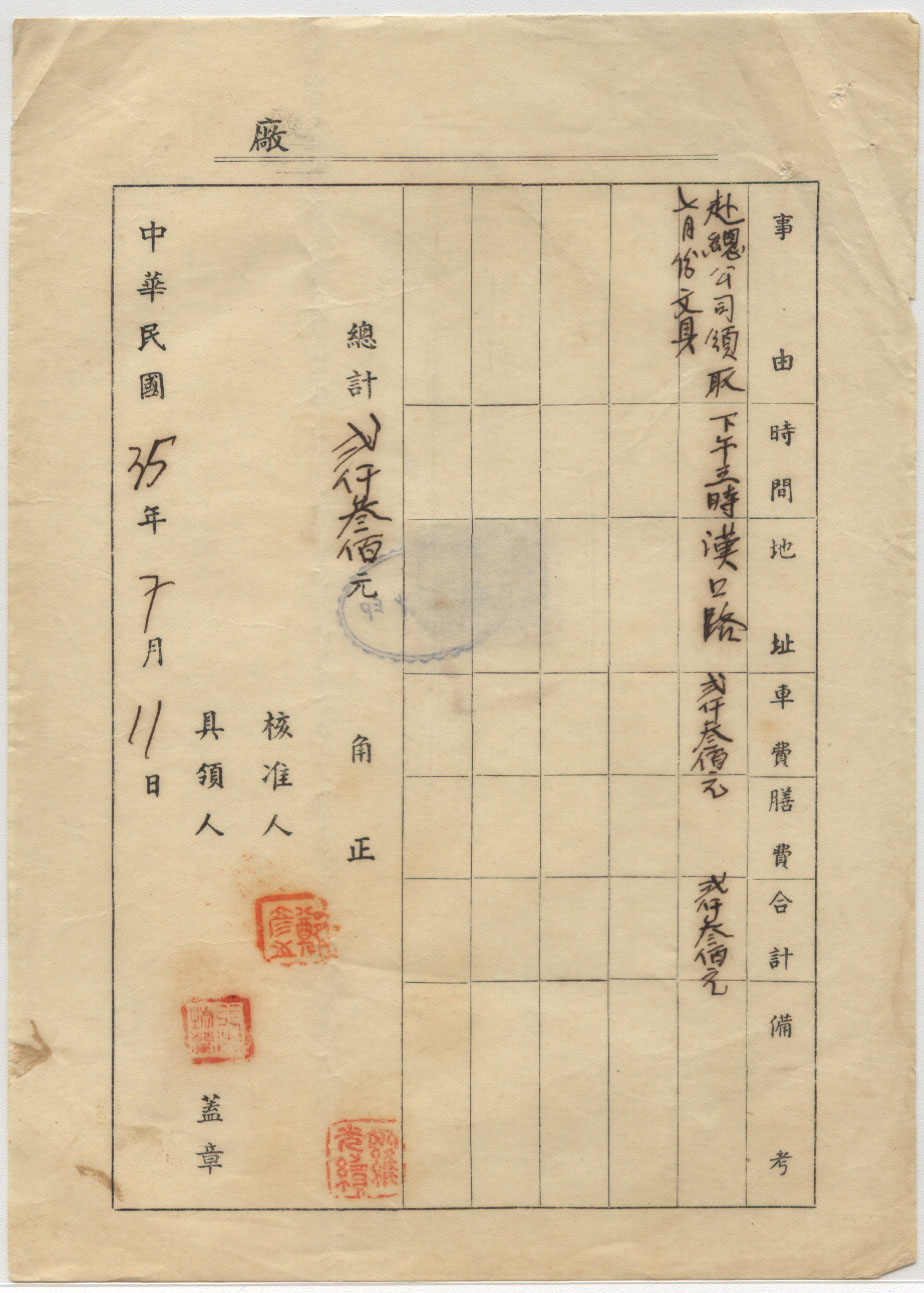 廠
事由
時間
地址
車費
膳費
合計
備考
赴總公司領取
七月份文具
下午三時
漢口路
弍仟叁佰元
弍仟叁佰元
總計弍仟叁佰元 角正
核准人
具領人 蓋章
中華民國35年7月11日